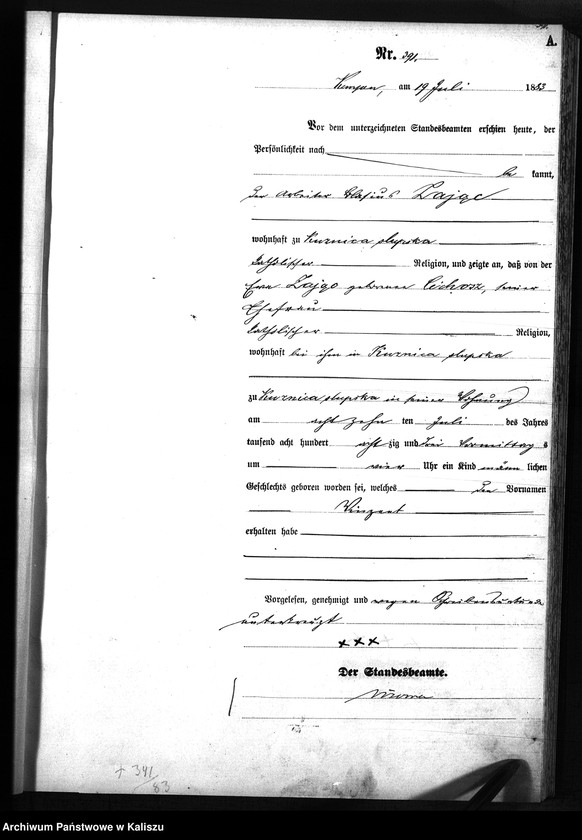 A.
Nr. 391.
Kempen, am 19 Juli 1883
Vor dem unterzeichneten Standesbeamten erschien heute, der
Persönlichkeit nach
be kannt,
der Arbeiter Blasius Zajge
wohnhaft zu Kuznica slupska
katholischer Religion, und zeigte an, daß von der
Eva Zajge geborenen Cichosz, seiner
Ehefrau
katholischer Religion,
wohnhaft bei ihm in Kuznica slupska
zu Kuznica slupska in seiner Wohnung
am acht zehn ten Juli des Jahres
tausend acht hundert acht zig und drei Vormittag s
um vier Uhr ein Kind männ lichen
Geschlechts geboren worden sei, welches den Vornamen
Vinzent
erhalten habe
Vorgelesen, genehmigt und wegen
unterkreuzt
xxx
Der Standesbeamte.
+ 341/83
Archiwum Państwowe w Kaliszu